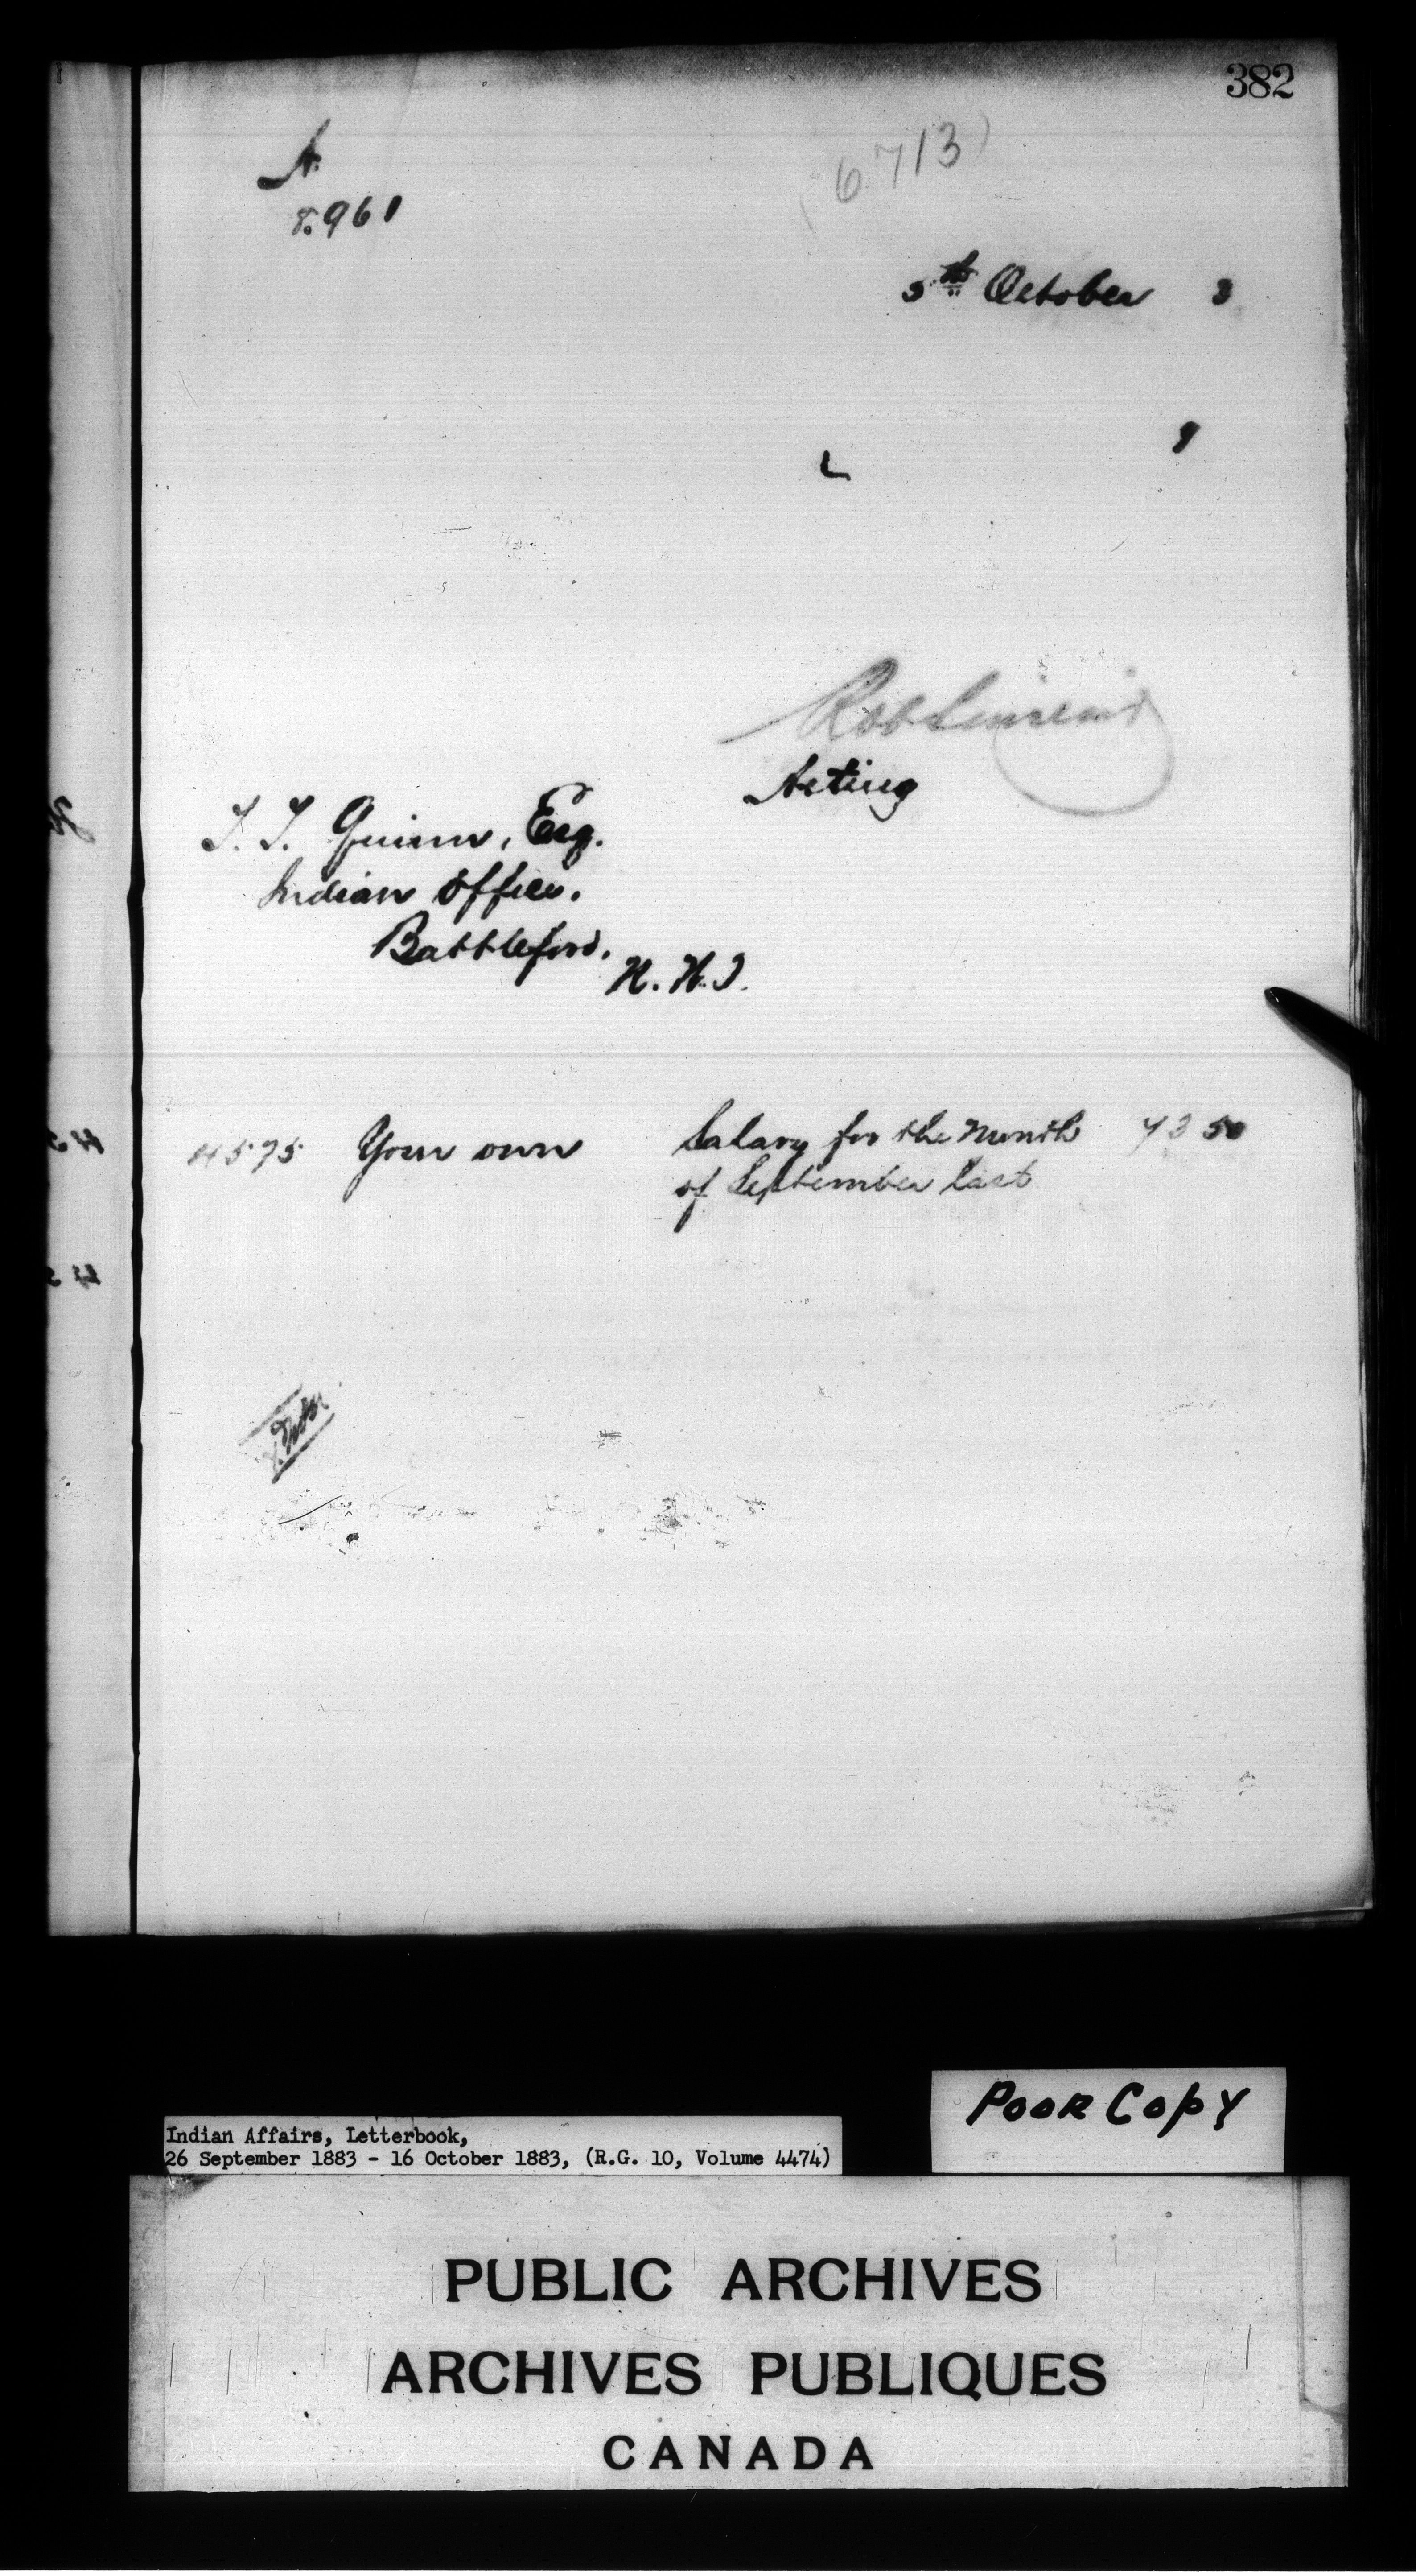 382
A.
8.961
6713)
5th October 3
L
9
Rob Sinclair
Acting
T. T. Quinn, Esq.
Indian Office.
Battleford.
N.W.T.
4575 Your own Salary for the Month 73 50
of September last
Poor Copy
Indian Affairs, Letterbook,
26 September 1883 - 16 October 1883, (R.G. 10, Volume 4474)
PUBLIC ARCHIVES
ARCHIVES PUBLIQUES
CANADA